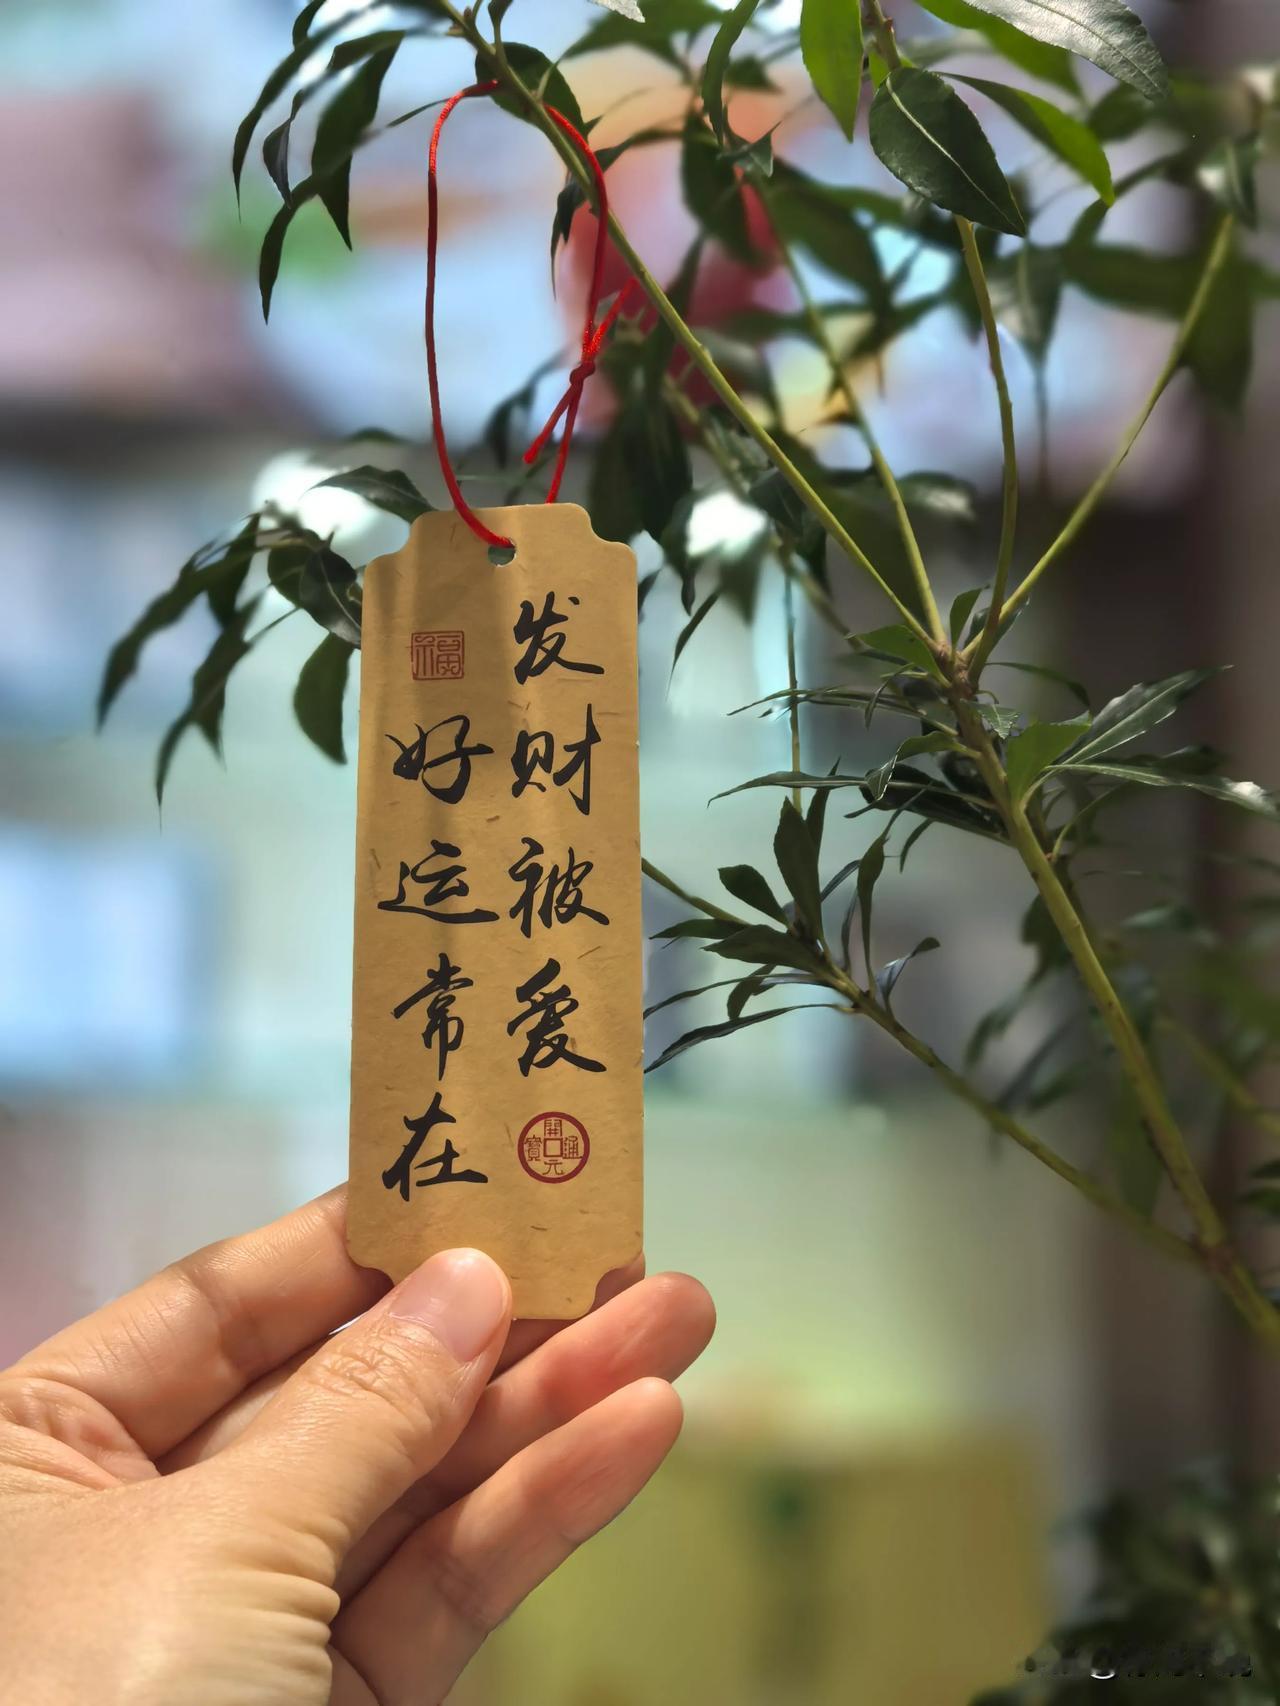 发财被爱
好运常在
福
開元通寶